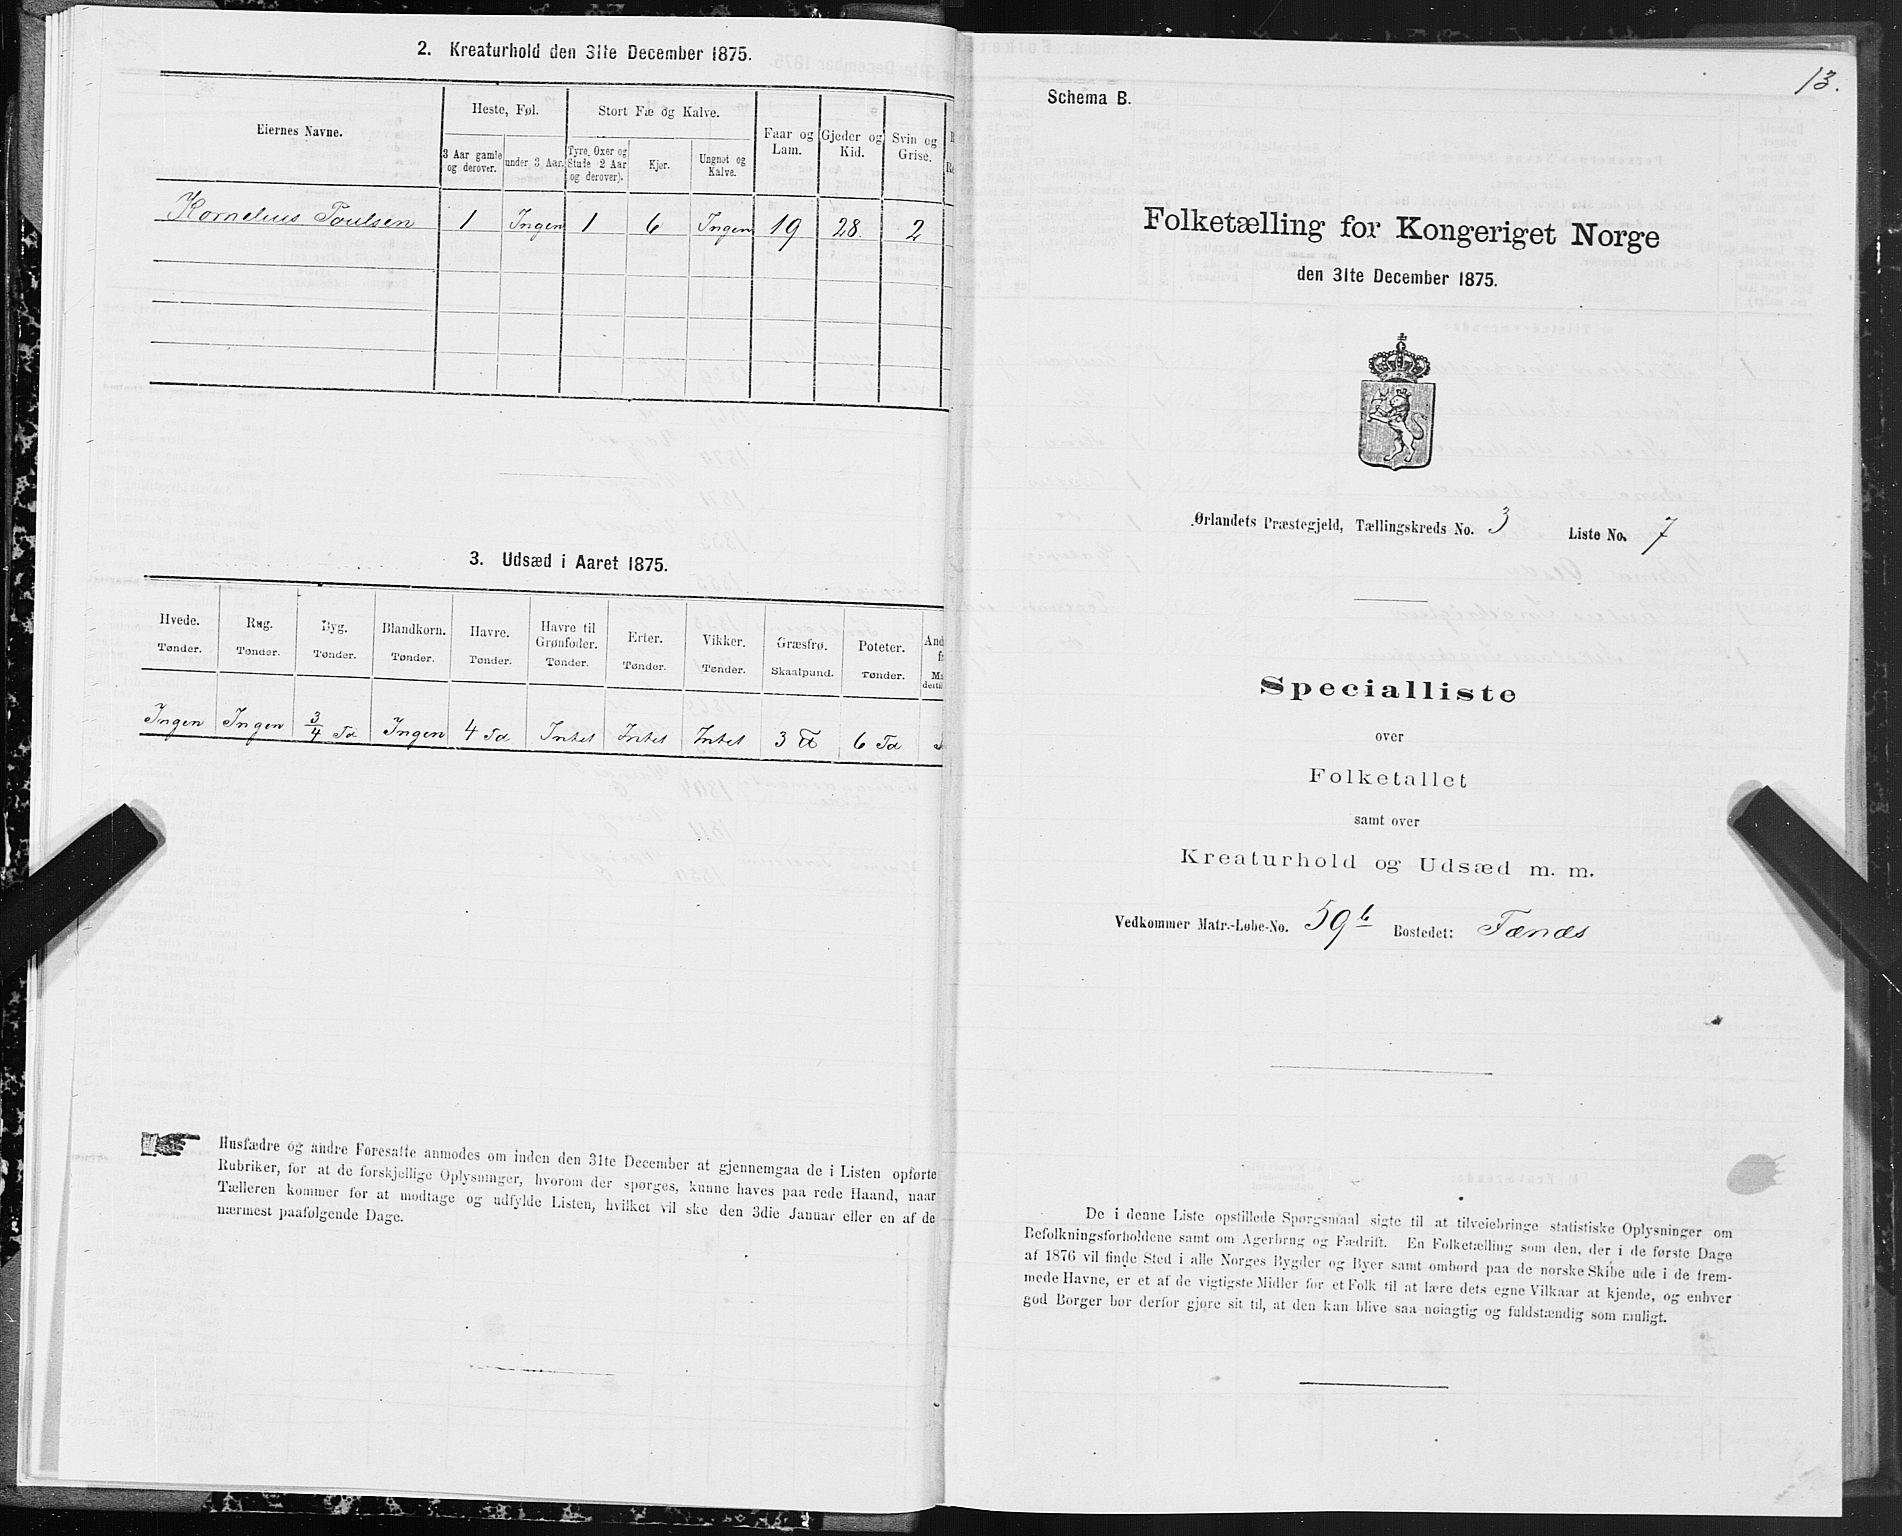 2. Kreaturhold den 31te December 1875.
Eiernes Navne.
Heste, Føl.
Stort Fæ og Kalve.
Faar og Lam.
Gjeder og Kid.
Svin og Grise.
3 Aar gamle og derover.
under 3 Aar.
Tyre, Oxer og Stude 2 Aar og derover).
Kjør.
Ungnøt og Kalve.
Kornelius Poulsen 1 Ingen 1 6 Ingen 19 28 2
3. Udsæd i Aaret 1875.
Hvede. Rug. Byg. Blandkorn. Havre. Havre til Grønfoder. Erter. Vikker. Græsfrø. Poteter.
Tønder. Tønder. Tønder. Tønder. Tønder. Tønder. Tønder. Tønder. Skaalpund. Tønder.
Ingen Ingen 3/4 Td Ingen 4 Td Intet Intet Intet 3 ℔ 6 Td
Husfædre og andre Foresatte anmodes om inden den 31te December at gjennemgaa de i Listen opførte
Rubriker, for at de forskjellige Oplysninger, hvorom der spørges, kunne haves paa rede Haand, naar
Tælleren kommer for at modtage og udfylde Listen, hvilket vil ske den 3die Januar eller en af de
nærmest paafølgende Dage.
13.
Schema B.
Folketælling for Kongeriget Norge
den 31te December 1875.
Ørlandets Præstegjeld, Tællingskreds No. 3 Liste No. 7
Specialliste
over
Folketallet
samt over
Kreaturhold og Udsæd m. m.
Vedkommer Matr.-Løbe-No. 59b Bostedet: Fænæs
De i denne Liste opstillede Spørgsmaal sigte til at tilveiebringe statistiske Oplysninger om
Befolkningsforholdene samt om Agerbrug og Fædrift. En Folketælling som den, der i de første Dage
af 1876 vil finde Sted i alle Norges Bygder og Byer samt ombord paa de norske Skibe ude i de frem-
mede Havne, er et af de vigtigste Midler for et Folk til at lære dets egne Vilkaar at kjende, og enhver
god Borger bør derfor gjøre sit til, at den kan blive saa nøiagtig og fuldstændig som muligt.